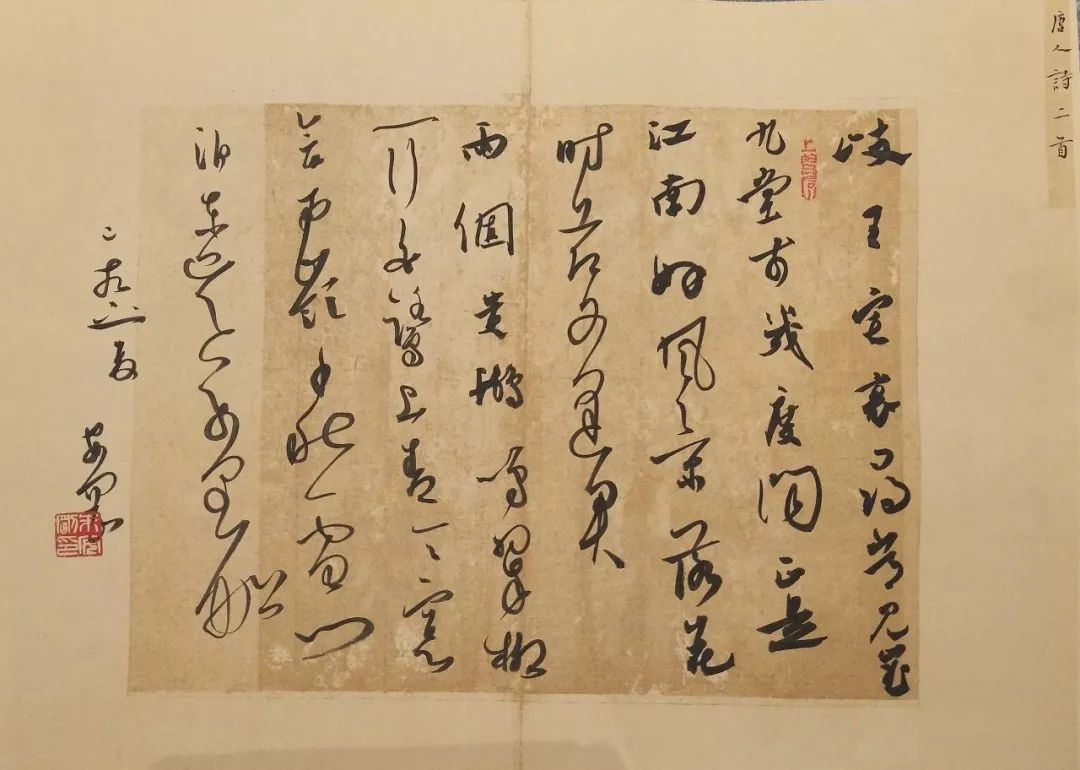 唐人詩二首
岐王宅裏尋常見崔
九堂前幾度聞正是
江南好風景落花
时节又逢君
兩個黃鸝鳴翠柳
一行白鷺上青天窗
含西嶺千秋雪門
泊東吳萬里船